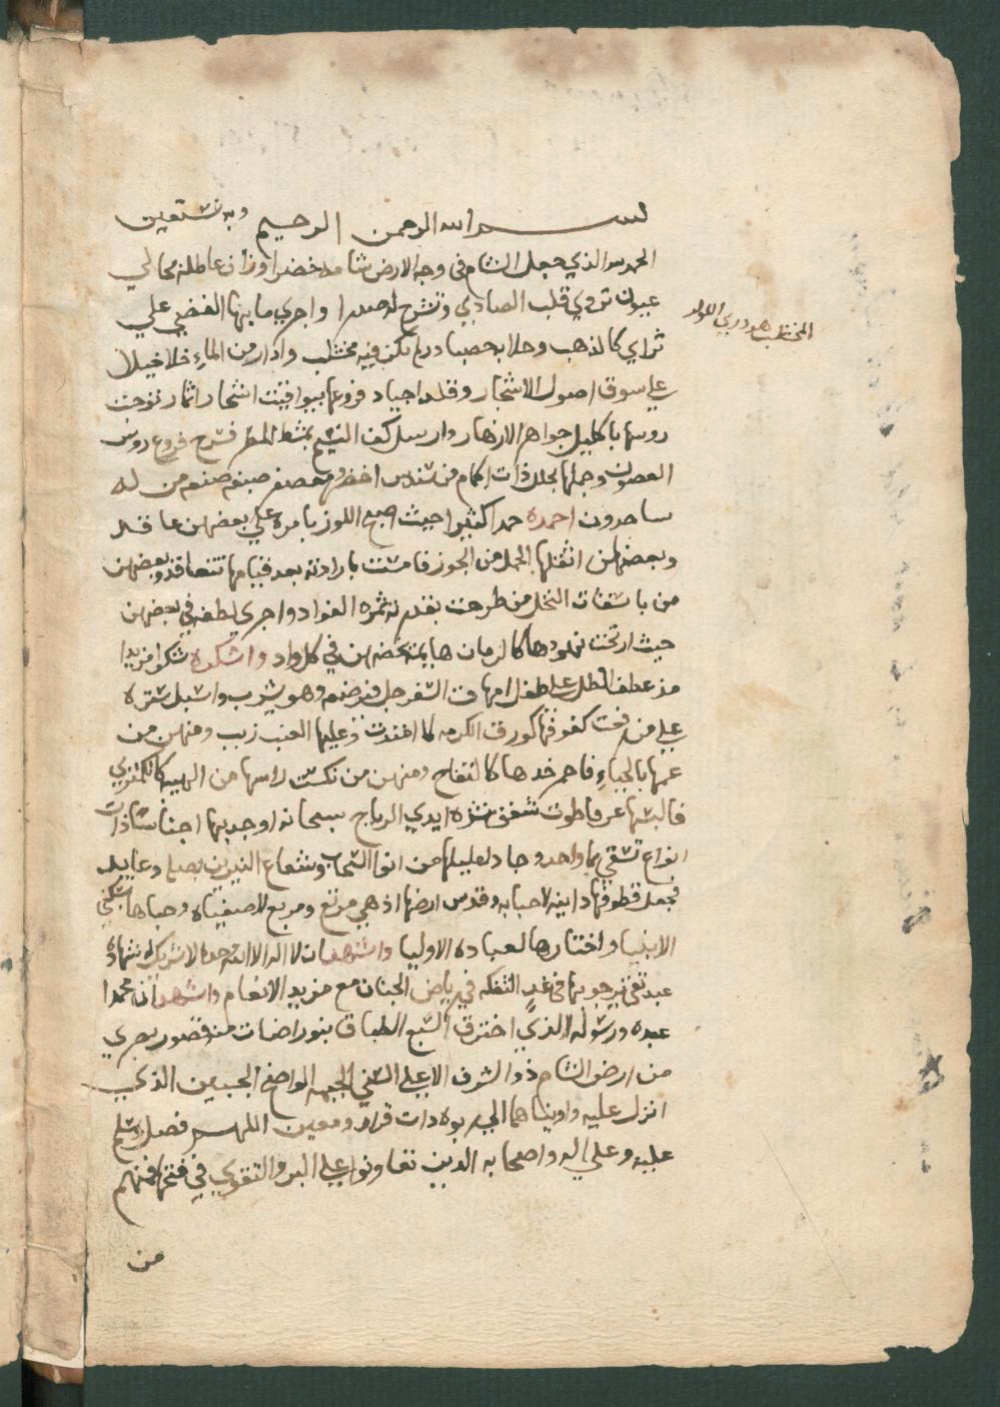 بسم الله الرحمن الرحيم وبه نستعين
الحمد لله الذي جعل الشام في وجه الارض شامه خضرا وزان عاطله بحالي
عيون تروي قلب الصادي وتشرح له صدرا واجري ما بها الفضي علي
ثراي كالذهب وحلا بحصبا در لم يكن فيه مخشلب وادار من الماء خلاخيلا
علي سوق اصول الاشجار وقلد اجياد فروعها بيواقيت اثمار توجت
روسها باكليل جواهر الازهار وارسل كف النسيم بمشط المطر فسرح فروع روس
الغصون وجملها بحلل ذات اكمام من سندس اخضر ومعصفر صبغه صنعه من له
ساجدون احمده حمدا كثيرا حيث اصبح اللوز بامره علي بعضهن عاقد
وبعضهن اثقلها الحمل من الجوز فامست بارادته بعد قيامها تتقاعد وبعضهن
من باسقات النخل من طرحت بقدرته ثمره الفواد واجري لطفه في بعضهن
حيث ارتخت نهودها كالرمان في كل واد واشكره شكرا مزيدا
مذ عطف الطل علي طفل امهات السفرجل وهو يشرب واسبل ستره
علي من فتحت كفوفها كورق الكرمه لما وعليها العنب زبب ومنهن من
عمها بالحياء فاحمر خدها كالتفاح ومنهن من نكست راسها من الهيبه كالكمثري
فالبسها ايدي الرياح سبحانه اوجد بها اجناسا ذات
انواع تسقي بما واحد وجاد لعليلها من انوا السحاب وشعاع النيرين بصله وعايد
فجعل قطوفها دانيه لاحبابه وقدس ارضها اذ هي مرتع ومربع لاصفياه وحباها بسكني
الانبيا واختارها لعباده الاوليا واشهد ان لا اله الا الله وحده لا شريك له شهادة
عبد تقي يرجو بها في غدٍ التفكه في رياض الجنان مع مزيد الانعام واشهد ان محمدا
عبده ورسوله الذي اخترق السبع الطباق بنور اضات منه قصور بصري
من ارض الشام ذو الشرف الاعلي السني الجبهه الواضح الجبين الذي
انزل عليه واويناهما الي ربوه ذات قرار ومعين اللهم فصل وسلم
عليه وعلي اله واصحابه الذين تعاونوا علي البر والتقوي في فتحها فمنهم
من
المخشلب هو دري اللولو